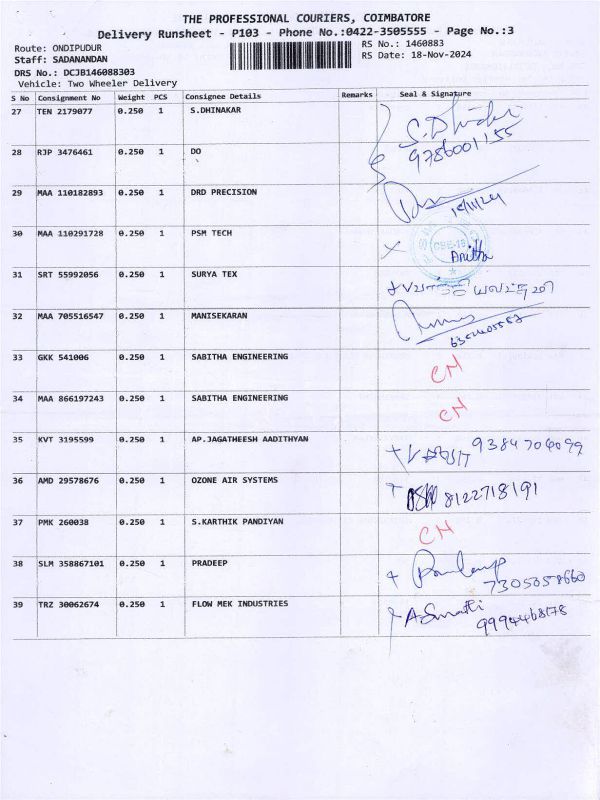 THE PROFESSIONAL COURIERS, COIMBATORE
Delivery Runsheet - P103 - Phone No.:0422-3505555 - Page No.:3
Route: ONDIPUDUR
RS No.: 1460883
Staff: SADANANDAN
RS Date: 18-Nov-2024
DRS No.: DCJB146088303
Vehicle: Two Wheeler Delivery
S No Consignment No Weight PCS Consignee Details Remarks Seal & Signature
27 TEN 2179077 0.250 1 S.DHINAKAR S.Dhinakar
9786001155
28 RJP 3476461 0.250 1 DO
29 MAA 110182893 0.250 1 DRD PRECISION 18/11/24
30 MAA 110291728 0.250 1 PSM TECH Anitha
31 SRT 55992056 0.250 1 SURYA TEX
32 MAA 705516547 0.250 1 MANISEKARAN
33 GKK 541006 0.250 1 SABITHA ENGINEERING CN
34 MAA 866197243 0.250 1 SABITHA ENGINEERING CN
35 KVT 3195599 0.250 1 AP.JAGATHEESH AADITHYAN 9384704099
36 AMD 29578676 0.250 1 OZONE AIR SYSTEMS 8122718191
37 PMK 260038 0.250 1 S.KARTHIK PANDIYAN CN
38 SLM 358867101 0.250 1 PRADEEP
7305058660
39 TRZ 30062674 0.250 1 FLOW MEK INDUSTRIES
9994468178